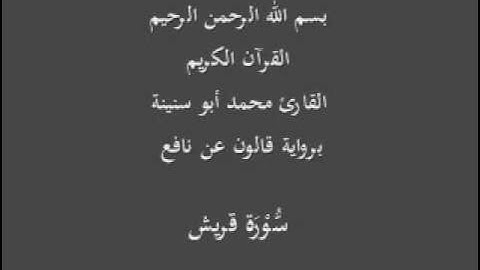 بسم الله الرحمن الرحيم
القرآن الكريم
القارئ محمد أبو سنينة
برواية قالون عن نافع
سُّوْرَة قريش